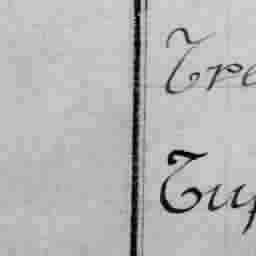 Tre
Tup